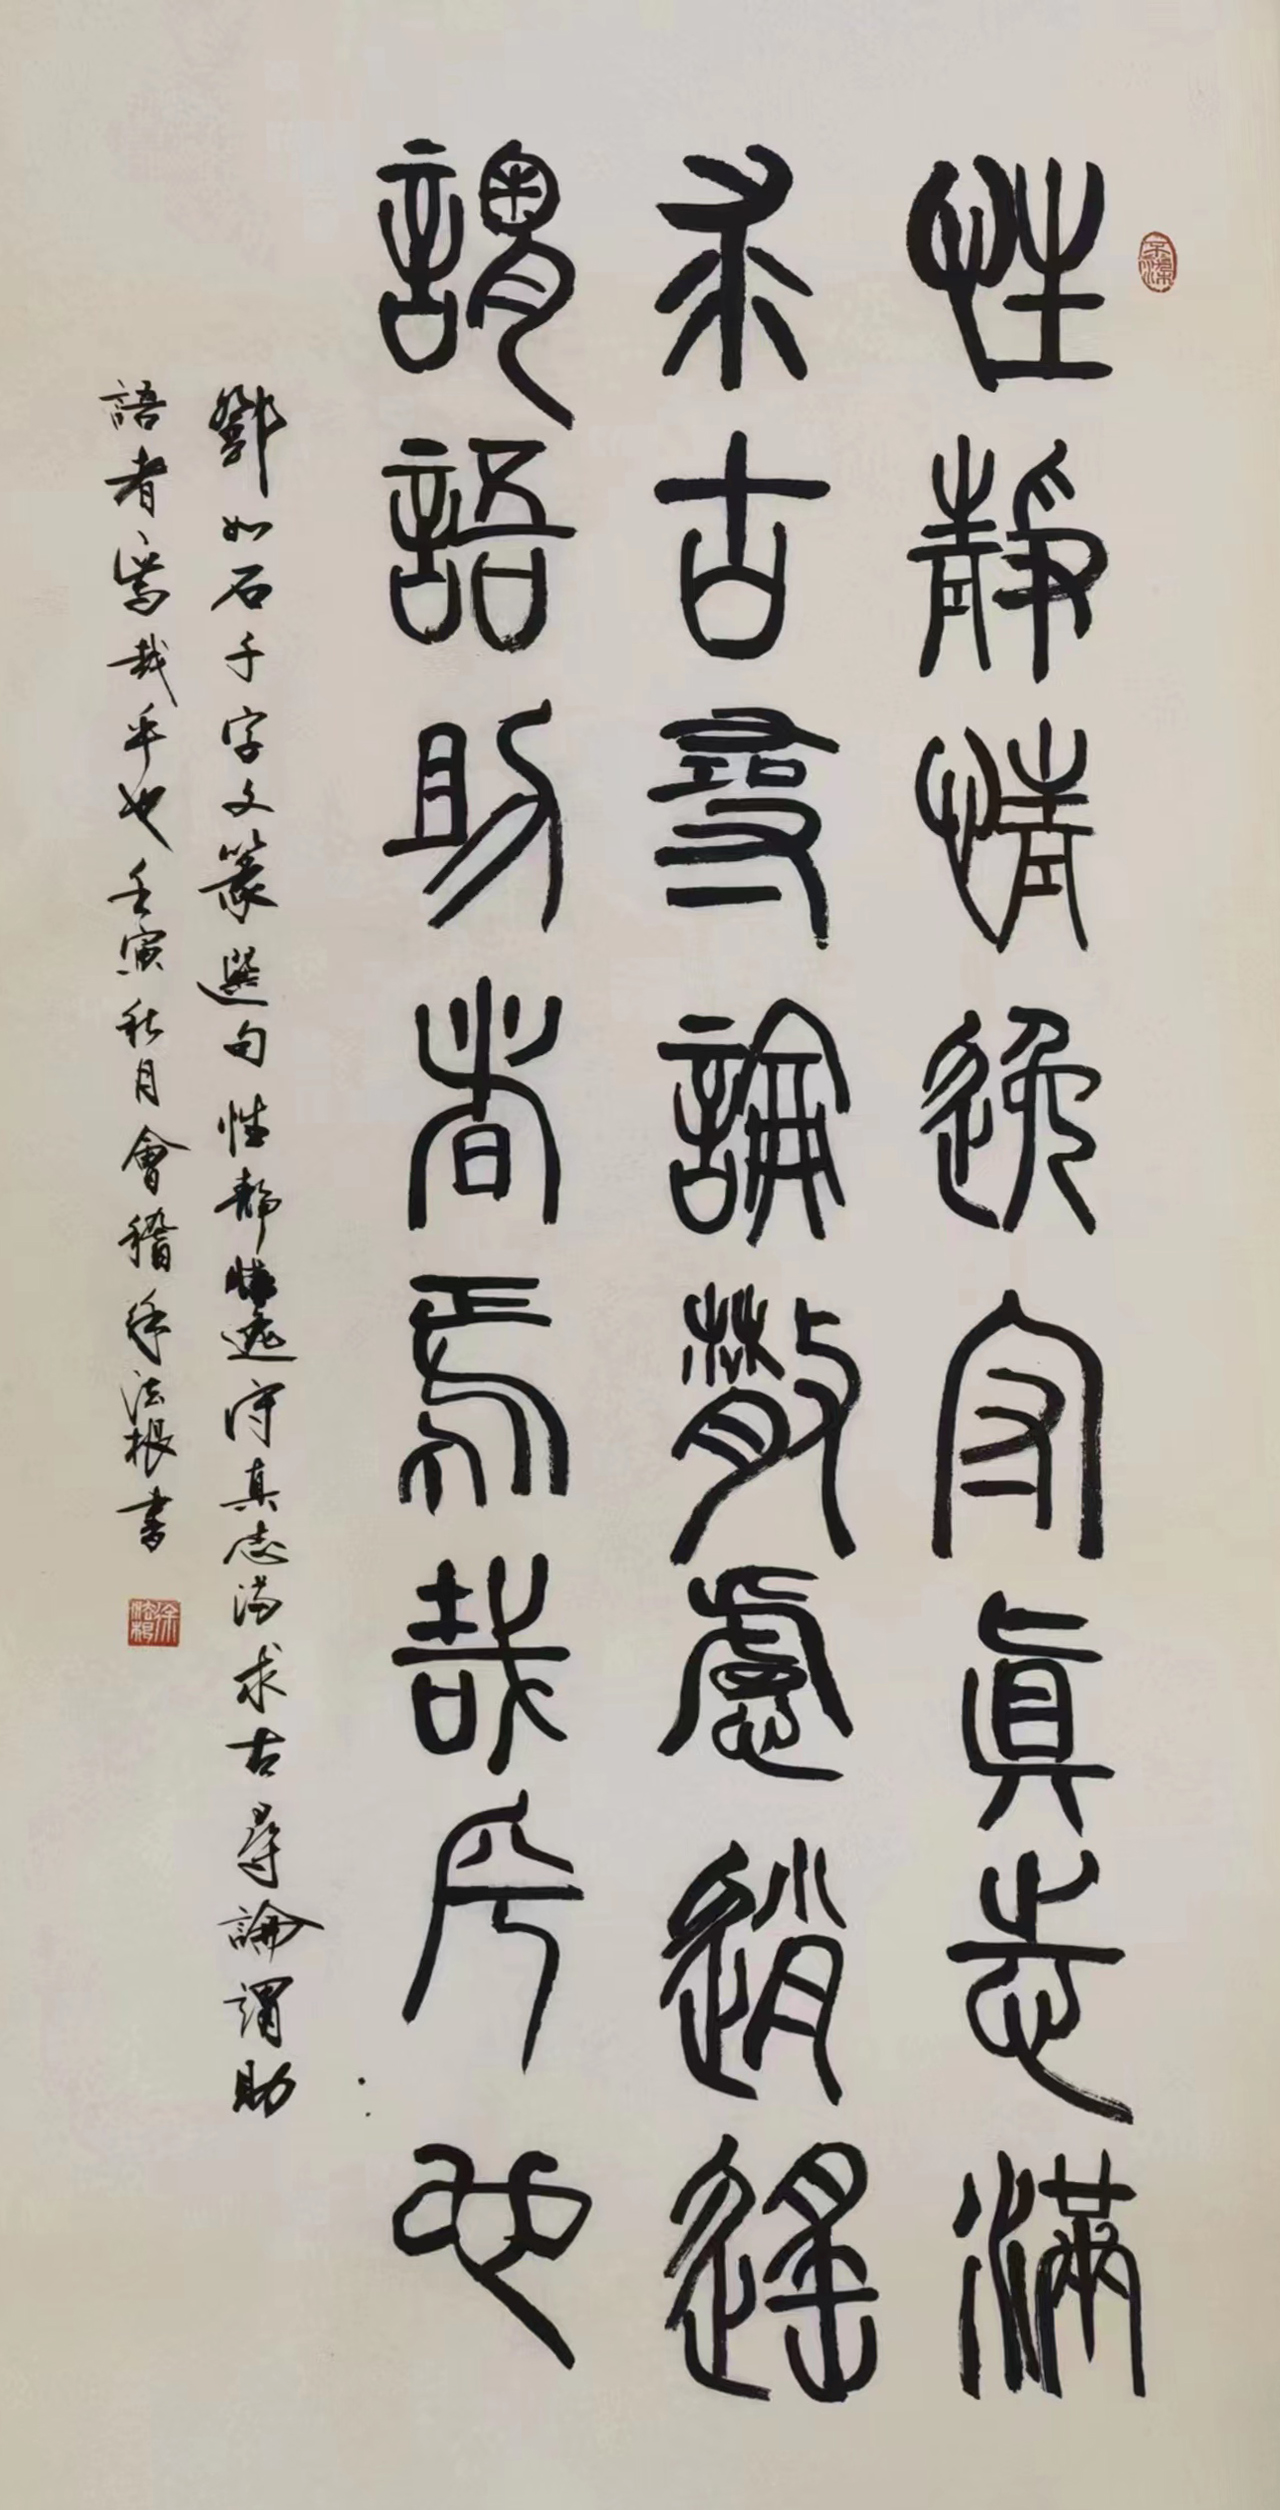 性靜情逸守真志滿
求古尋論散慮逍遙
謂語助者焉哉乎也
鄧如石千字文篆選句性靜情逸守真志滿求古尋論謂助
語者焉哉乎也壬寅秋月會稽徐法根書
徐法根